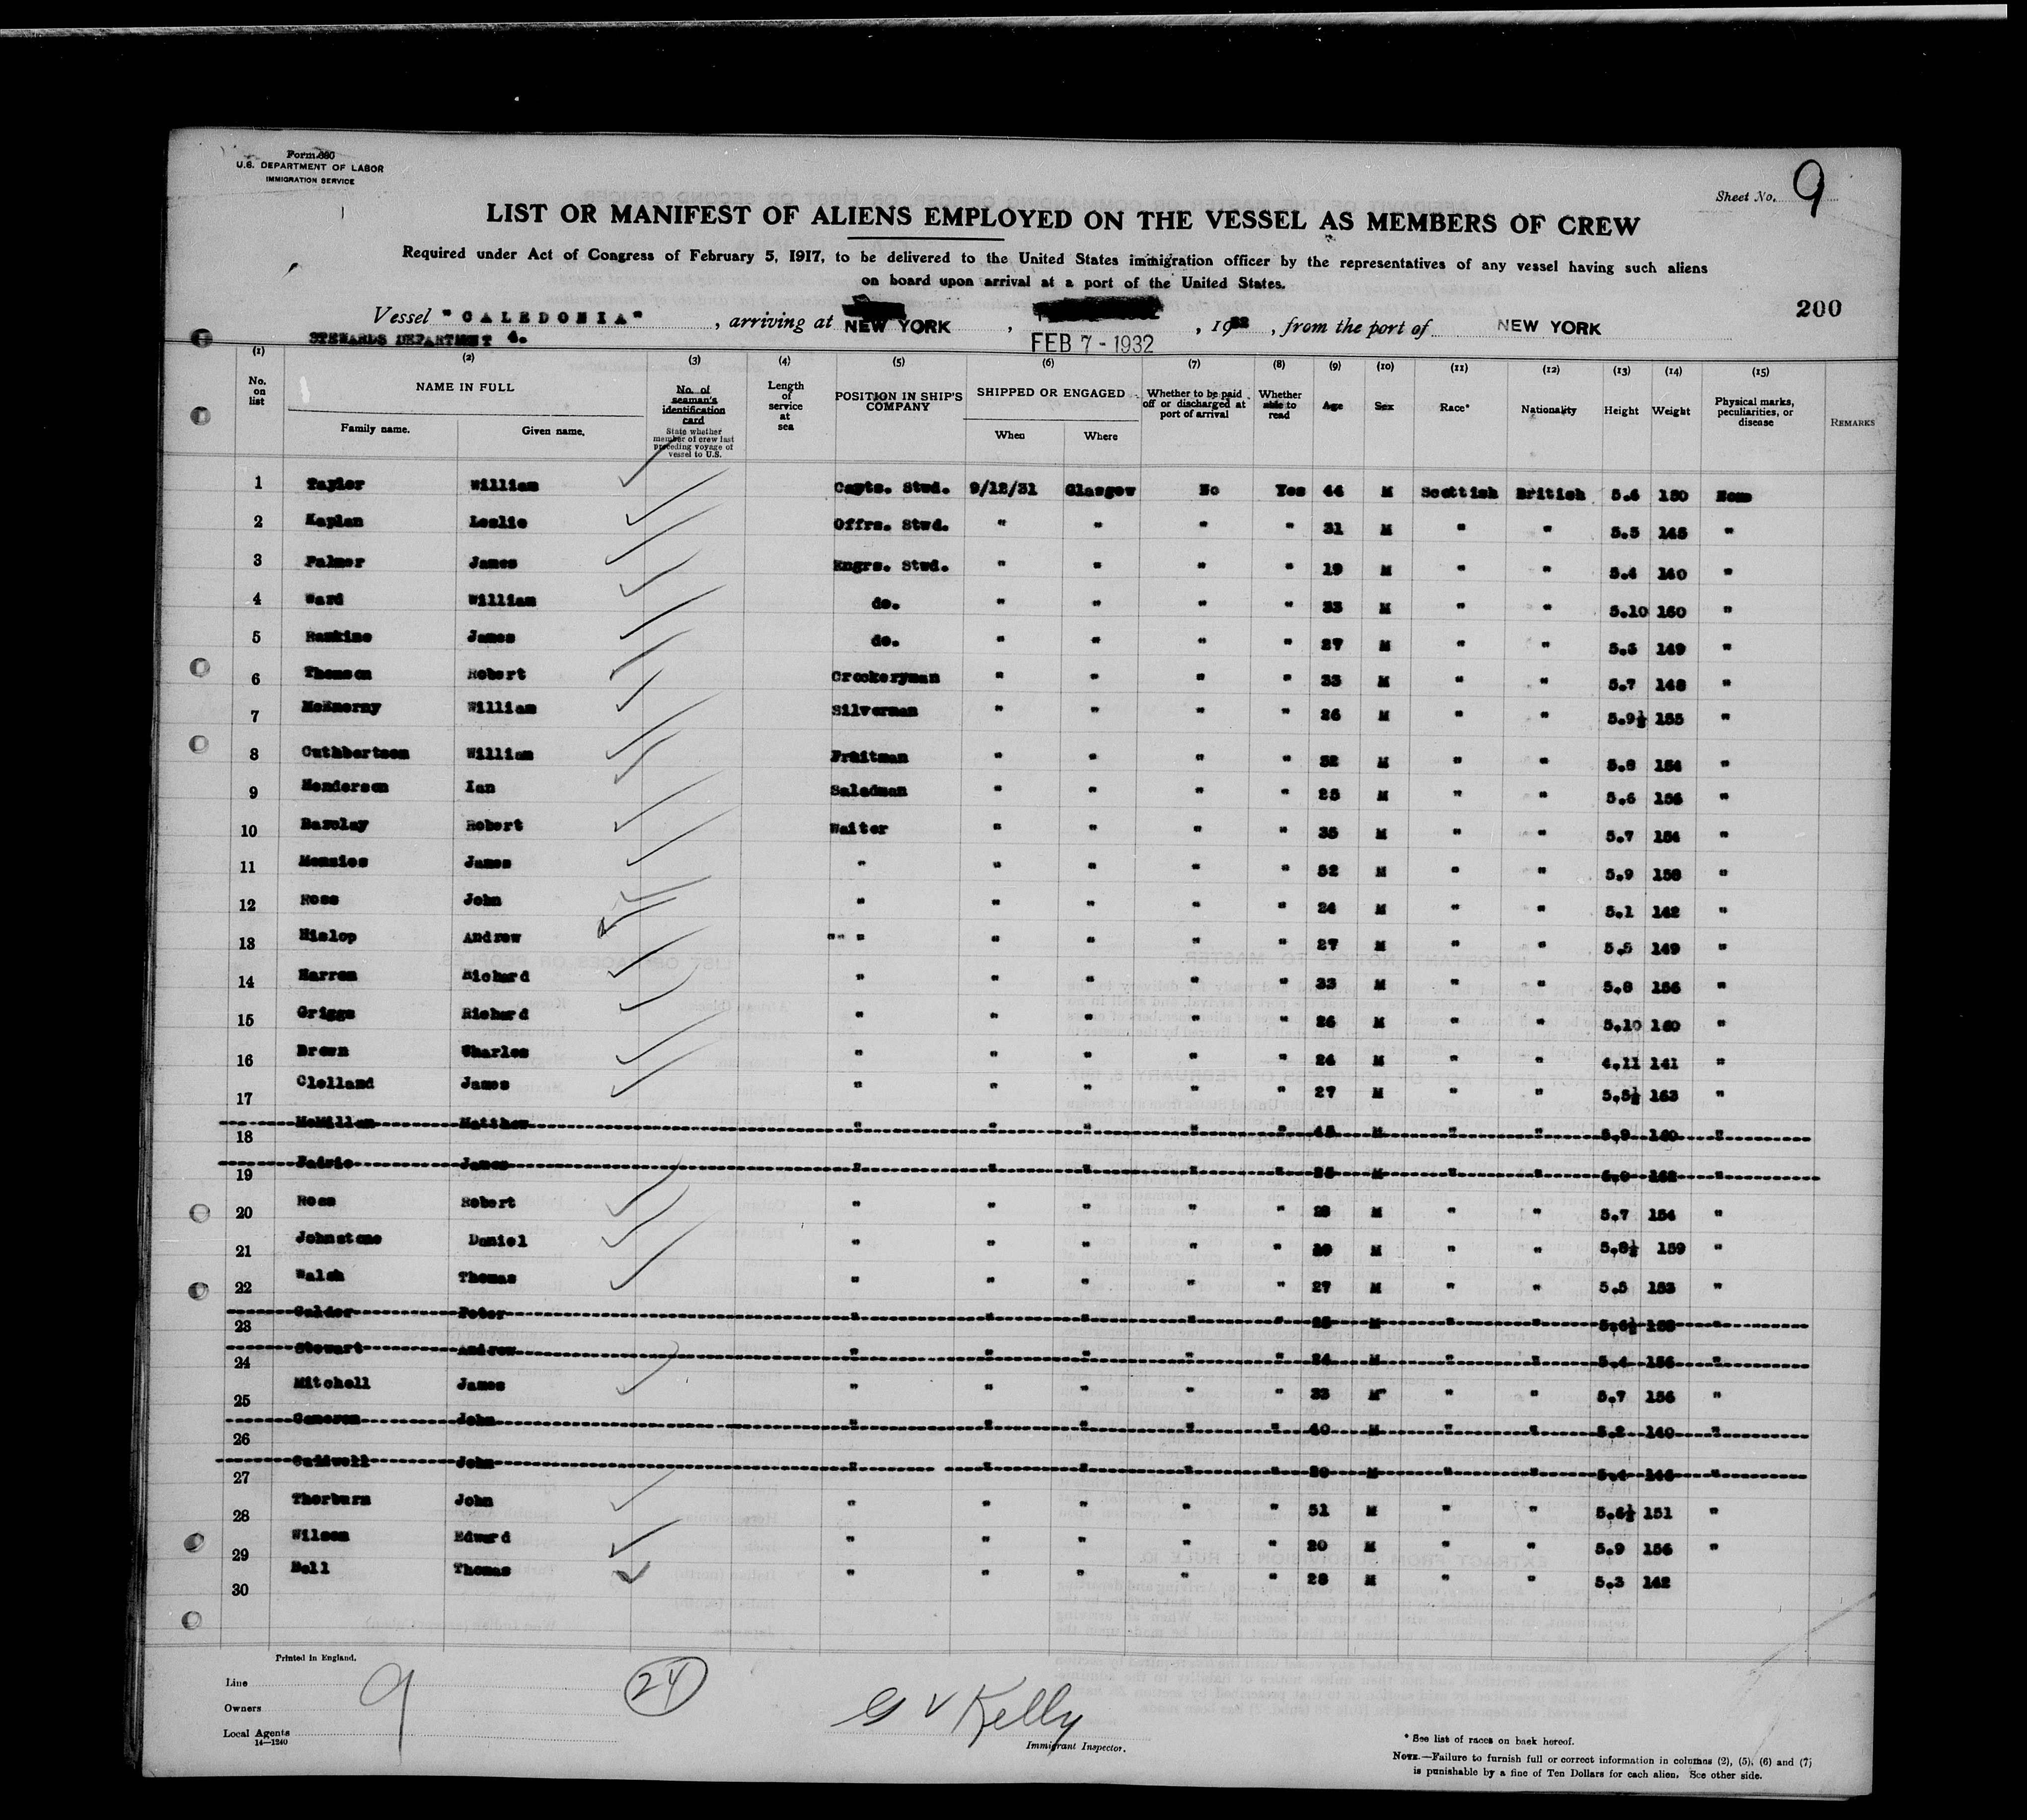 Form 680
U.S. DEPARTMENT OF LABOR
IMMIGRATION SERVICE
Sheet No. 9
LIST OR MANIFEST OF ALIENS EMPLOYED ON THE VESSEL AS MEMBERS OF CREW
Required under Act of Congress of February 5, 1917, to be delivered to the United States immigration officer by the representatives of any vessel having such aliens
on board upon arrival at a port of the United States.
200
Vessel "CALEDONIA", arriving at NEW YORK, FEB 7 - 1932, 1932, from the port of NEW YORK
STEWARDS DEPARTMENT 4.
(1) (2) (3) (4) (5) (6) (7) (8) (9) (10) (11) (12) (13) (14) (15)
No. on list NAME IN FULL Family name. Given name. No. of seaman's identification card State whether member of crew last preceding voyage of vessel to U.S. Length of service at sea POSITION IN SHIP'S COMPANY SHIPPED OR ENGAGED When Where Whether to be paid off or discharged at port of arrival Whether able to read Age Sex Race* Nationality Height Weight Physical marks, peculiarities, or disease REMARKS
1 Taylor William Capts. Stwd. 9/12/31 Glasgow No Yes 44 M Scottish British 5.6 150 None
2 Kaplan Leslie Offrs. Stwd. " " " " 31 M " " 5.5 145 "
3 Palmer James Engrs. Stwd. " " " " 19 M " " 5.4 140 "
4 Ward William do. " " " " 33 M " " 5.10 160 "
5 Rankine James do. " " " " 27 M " " 5.5 149 "
6 Thomson Robert Crockeryman " " " " 33 M " " 5.7 148 "
7 McEnerny William Silverman " " " " 26 M " " 5.9½ 155 "
8 Cuthbertson William Fruitman " " " " 32 M " " 5.8 154 "
9 Henderson Ian Saladman " " " " 25 M " " 5.6 156 "
10 Barclay Robert Waiter " " " " 35 M " " 5.7 154 "
11 Menzies James " " " " " 52 M " " 5.9 158 "
12 Ross John " " " " " 24 M " " 5.1 142 "
13 Hislop Andrew " " " " " 27 M " " 5.5 149 "
14 Harron Richard " " " " " 33 M " " 5.8 156 "
15 Griggs Richard " " " " " 26 M " " 5.10 160 "
16 Brown Charles " " " " " 24 M " " 4.11 141 "
17 Clelland James " " " " " 27 M " " 5.5½ 163 "
18 McMillan Matthew " " " " " 45 M " " 5.9 160 "
19 James " " " " " M " " 162 "
20 Ross Robert " " " " " 28 M " " 5.7 154 "
21 Johnstone Daniel " " " " " M " " 5.8½ 159 "
22 Walsh Thomas " " " " " 27 M " " 5.5 153 "
23 Calder Peter " " " " " M 5.6½
24 Stewart Andrew " " " " " 24 M " " 5.4 156 "
25 Mitchell James " " " " " 33 M " " 5.7 156 "
26 Cameron John " " " " " 40 M " " 5.2 140 "
27 Caldwell John " " " " " M " " 5.4 "
28 Thorburn John " " " " " 51 M " " 5.6½ 151 "
29 Wilson Edward " " " " " 20 M " " 5.9 156 "
30 Bell Thomas " " " " " 28 M " " 5.3 142
Printed in England.
Line
Owners
Local Agents
14—1240
9
24
G V Kelly
Immigrant Inspector.
* See list of races on back hereof.
NOTE.—Failure to furnish full or correct information in columns (2), (5), (6) and (7)
is punishable by a fine of Ten Dollars for each alien. See other side.